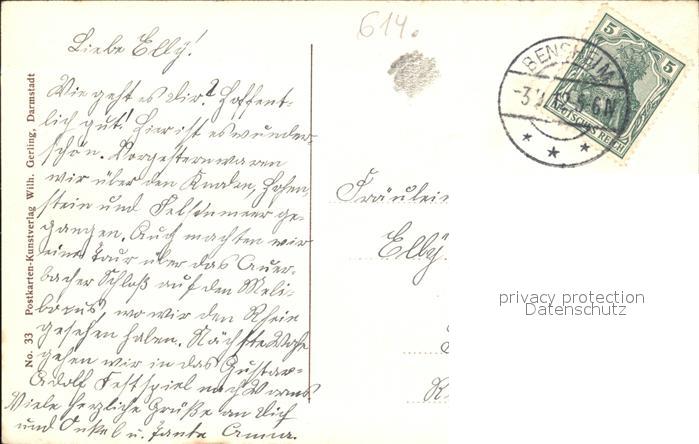 614.
Liebe Elly!
Wie geht es dir? Hoffent-
lich gut! Hier ist es wunder-
schön. Vorgestern waren
wir über den Knoden, Hohen-
stein und Felsenmeer ge-
gangen. Auch machten wir
eine Tour über das Auer-
bacher Schloß auf den Meli-
bocus, wo wir den Rhein
gesehen haben. Nächste Woche
gehen wir in das Gustav-
Adolf Festspiel nach Worms
Viele herzliche Grüße an Dich
und Onkel u. Tante Anna.
No. 33 Postkarten-Kunstverlag Wilh. Gerling, Darmstadt
BENSHEIM
5 5
DEUTSCHES REICH
Fräulein
Elly
privacy protection
Datenschutz